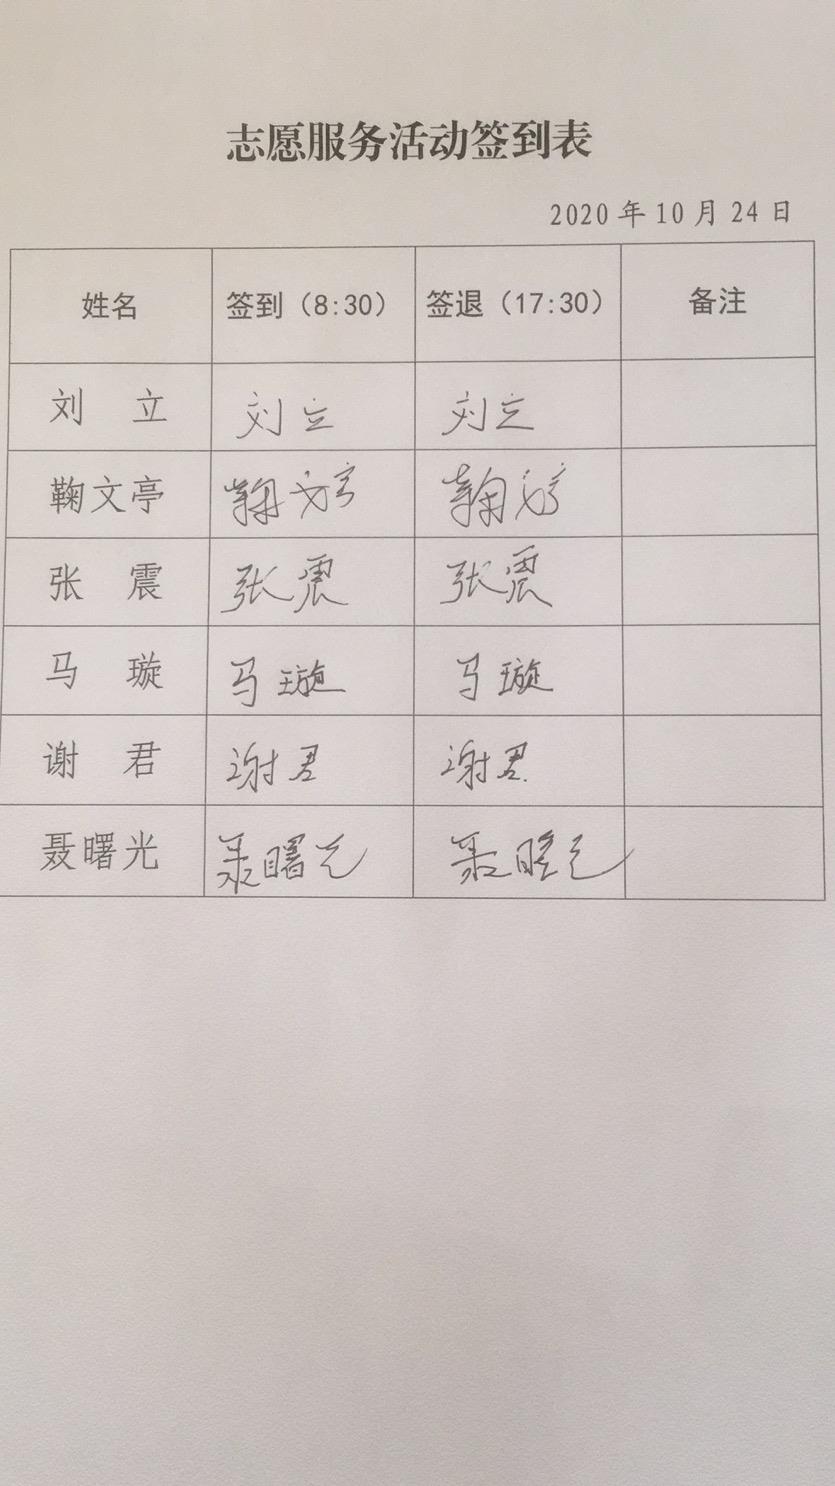 志愿服务活动签到表
2020年10月24日
姓名 签到（8:30） 签退（17:30） 备注
刘 立 刘立 刘立
鞠文亭 鞠文亭 鞠文亭
张 震 张震 张震
马 璇 马璇 马璇
谢 君 谢君 谢君
聂曙光 聂曙光 聂曙光